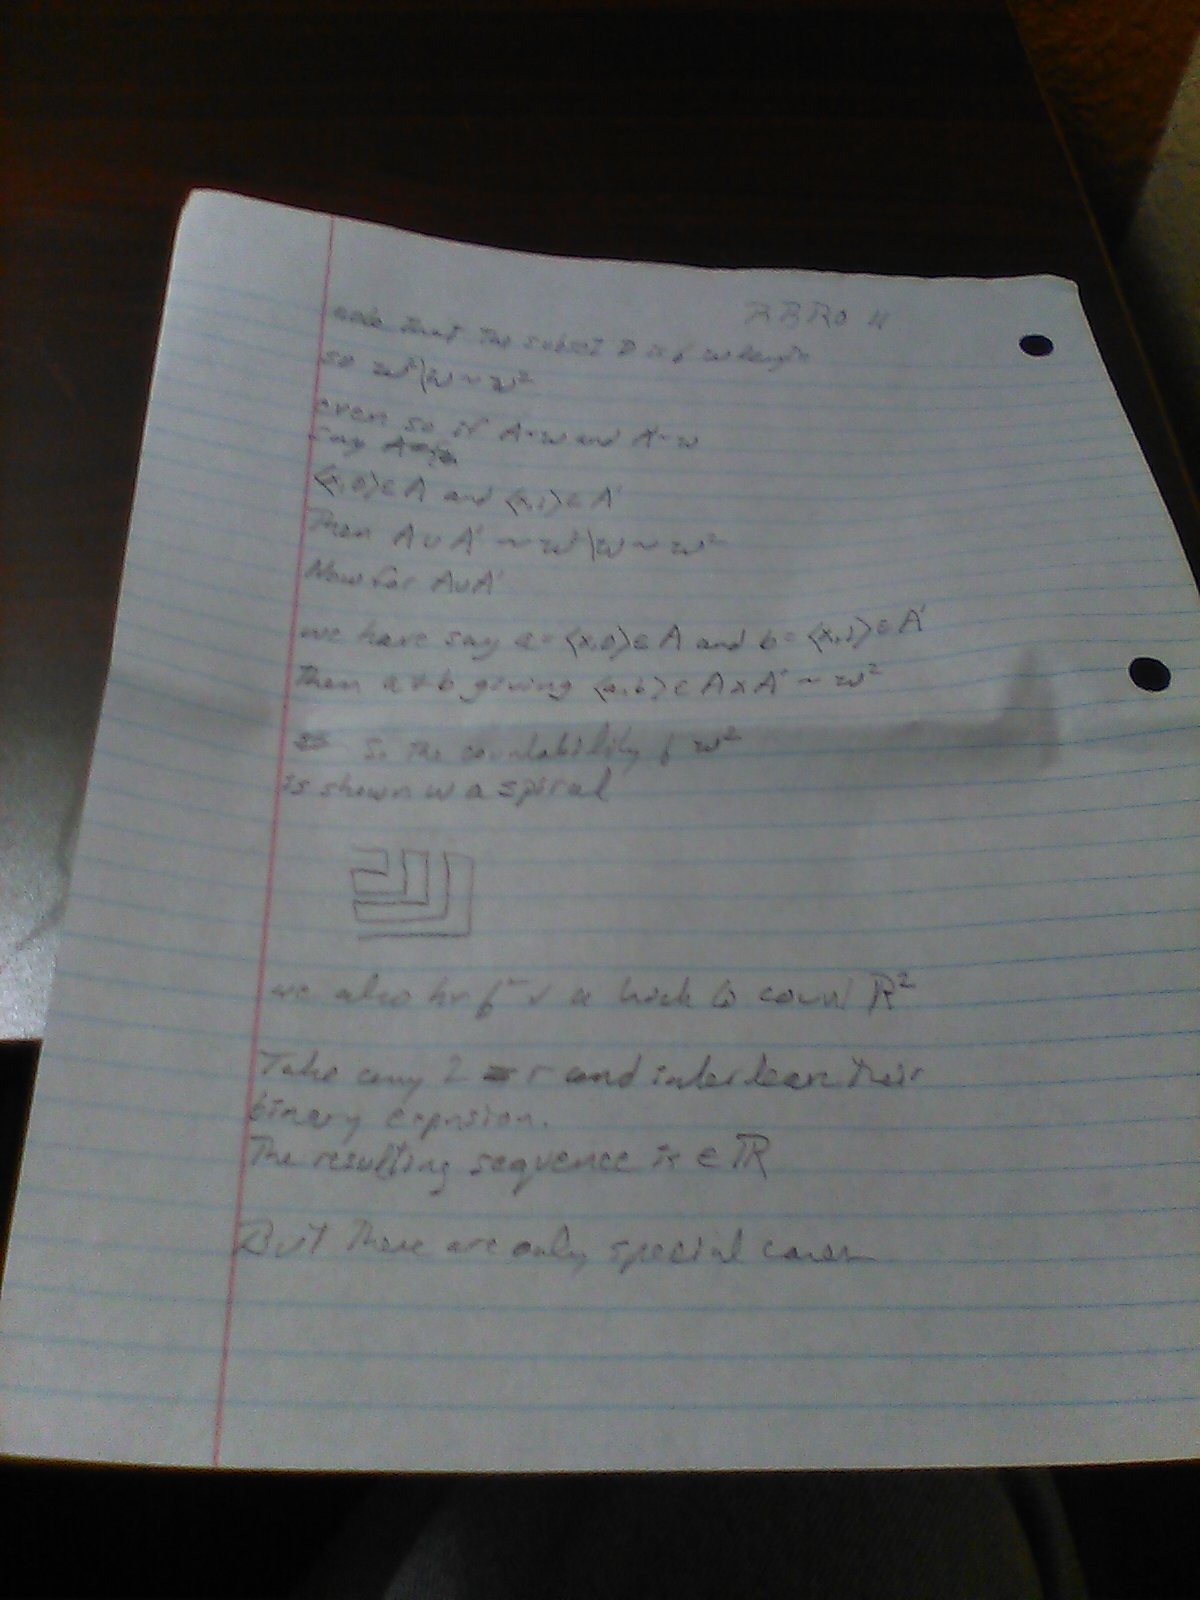 ZBRO 4
note that the subset D is of ω length
so ω²\ω ~ ω²
even so if A~ω and A'~ω
say A
⟨x,0⟩∈A and ⟨x,1⟩∈A'
Then A∪A' ~ ω²\ω ~ ω²
Now for A∪A'
we have say a=⟨x,0⟩∈A and b=⟨x,1⟩∈A'
Then a≠b giving ⟨a,b⟩∈A×A' ~ ω²
So the countability of ω²
is shown w a spiral
we also a trick to count ℝ²
Take any 2 r and interleave their
binary expnsion.
The resulting sequence is ∈ ℝ
But these are only special cases